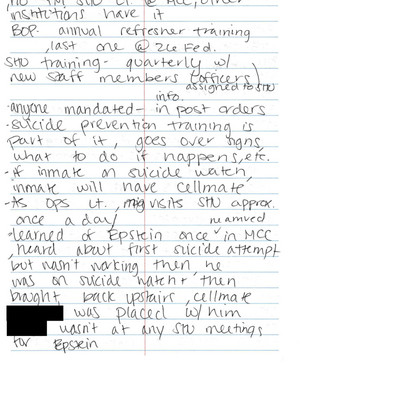 no FM SHU Lt. @ MCC, other
institutions have it
BOP. annual refresher training
, last one @ Fed.
SHU training - quarterly w/
new staff members (officers)
assigned to SHU
info.
· anyone mandated - in post orders
· suicide prevention training is
part of it, goes over signs,
what to do if happens, etc.
- if inmate on suicide watch,
inmate will have cellmate
- As OPS Lt., visits SHU approx.
once a day/
· learned of Epstein once he arrived in MCC
, heard about first suicide attempt
but wasn't working then, he
was on suicide watch + then
bought back upstairs, cellmate
was placed w/ him
wasn't at any SHU meetings
for Epstein